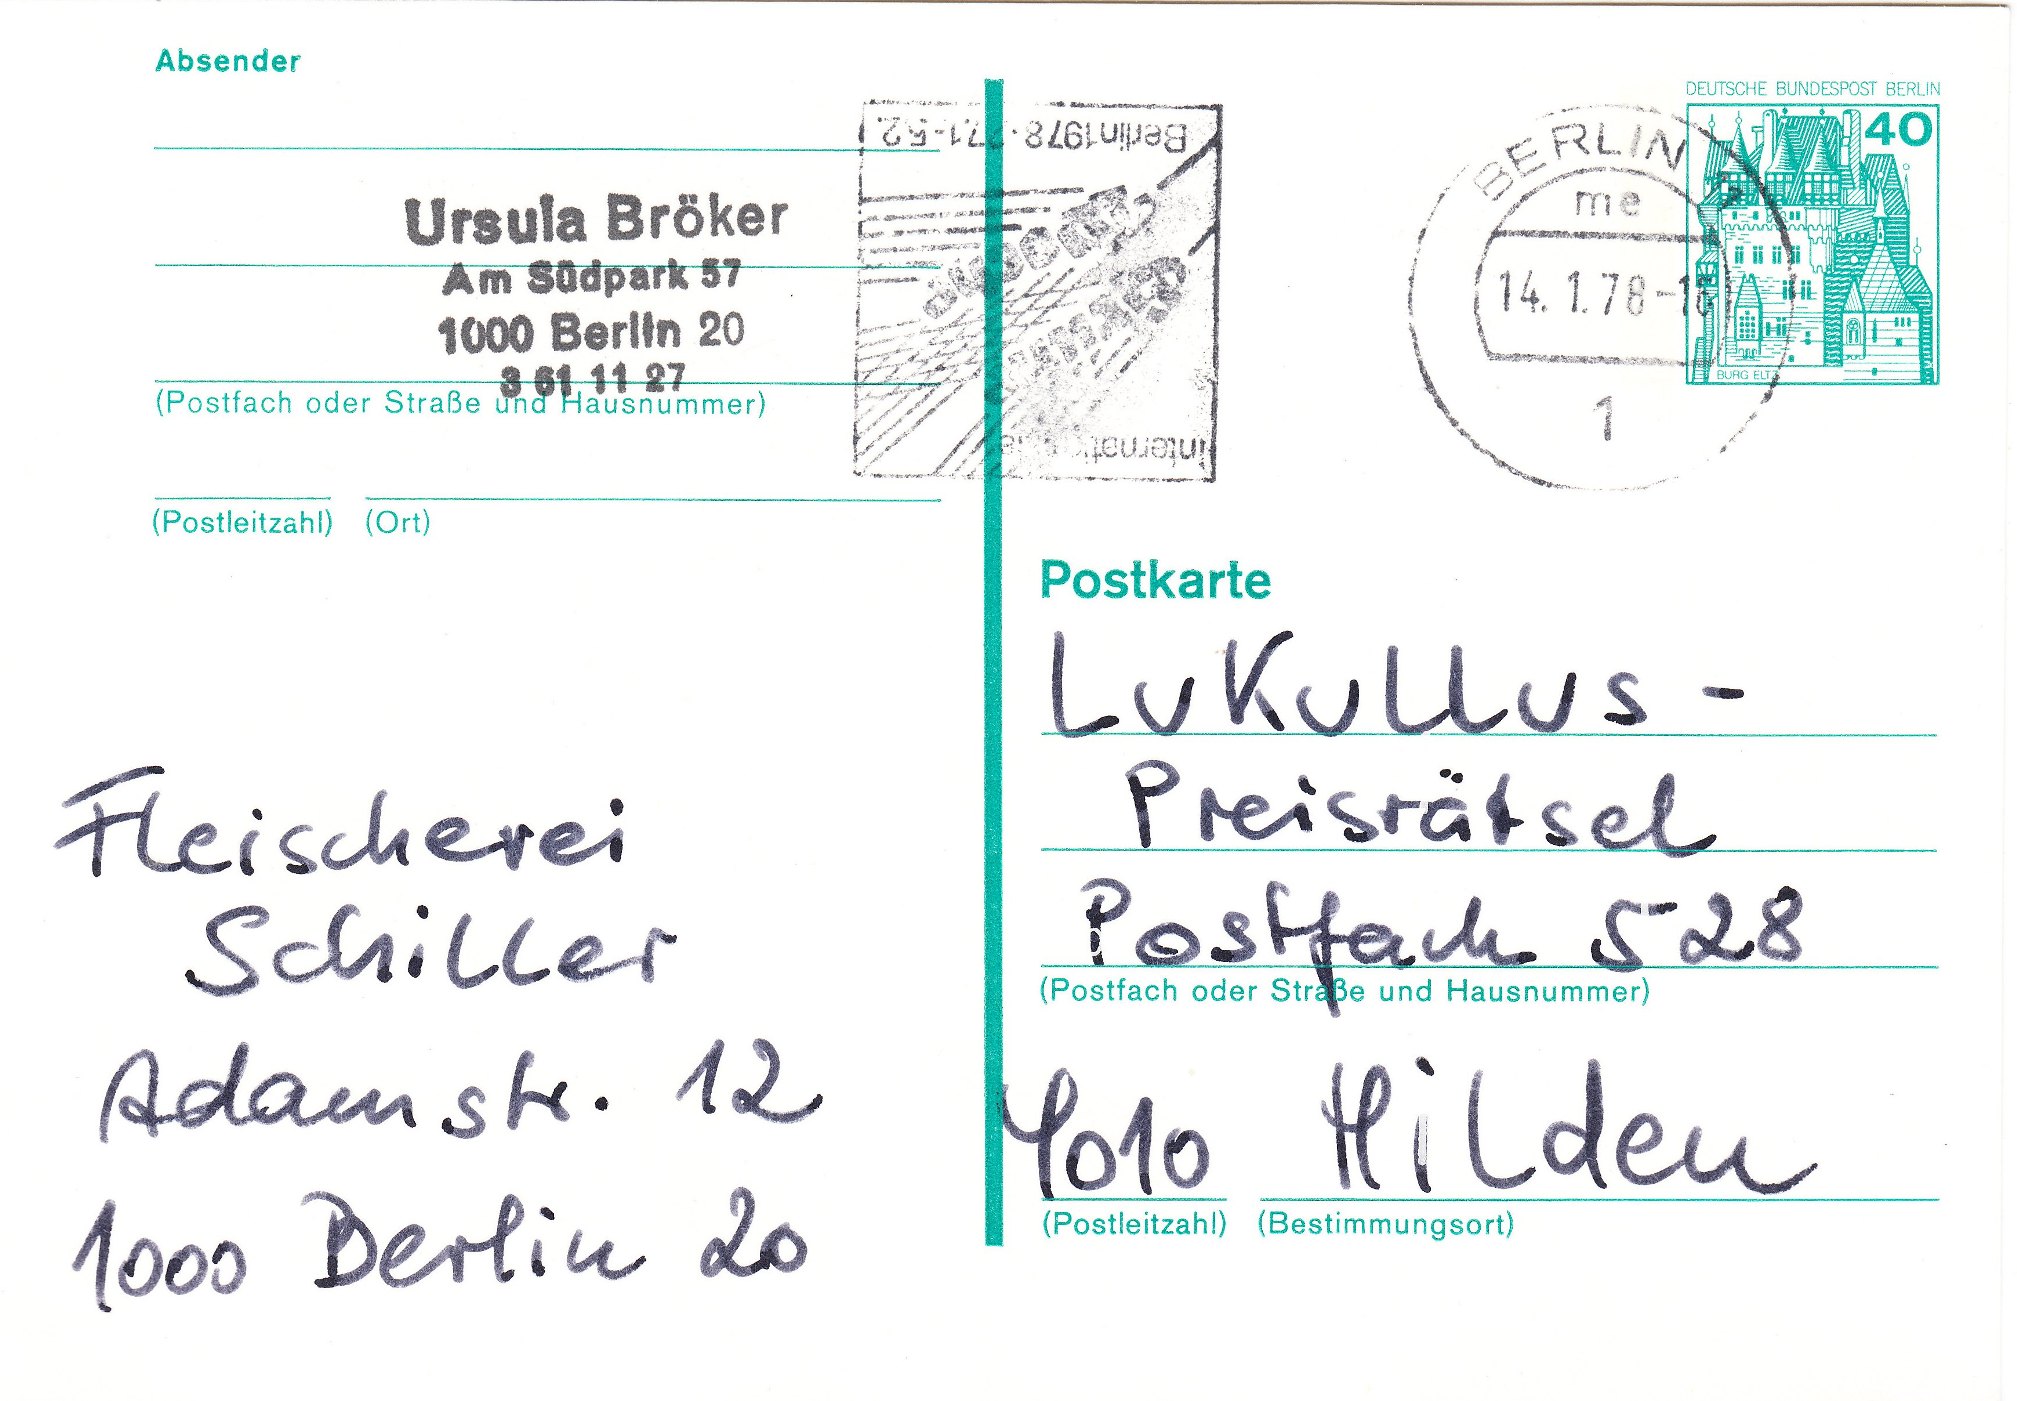 Absender
Ursula Bröker
Am Südpark 57
1000 Berlin 20
3 61 11 27
(Postfach oder Straße und Hausnummer)
(Postleitzahl) (Ort)
Fleischerei
Schiller
Adamstr. 12
1000 Berlin 20
Berlin 1978
BERLIN
me
14. 1. 78
1
DEUTSCHE BUNDESPOST BERLIN
40
BURG ELTZ
Postkarte
Lukullus -
Preisrätsel
Postfach 528
(Postfach oder Straße und Hausnummer)
4010 Hilden
(Postleitzahl) (Bestimmungsort)